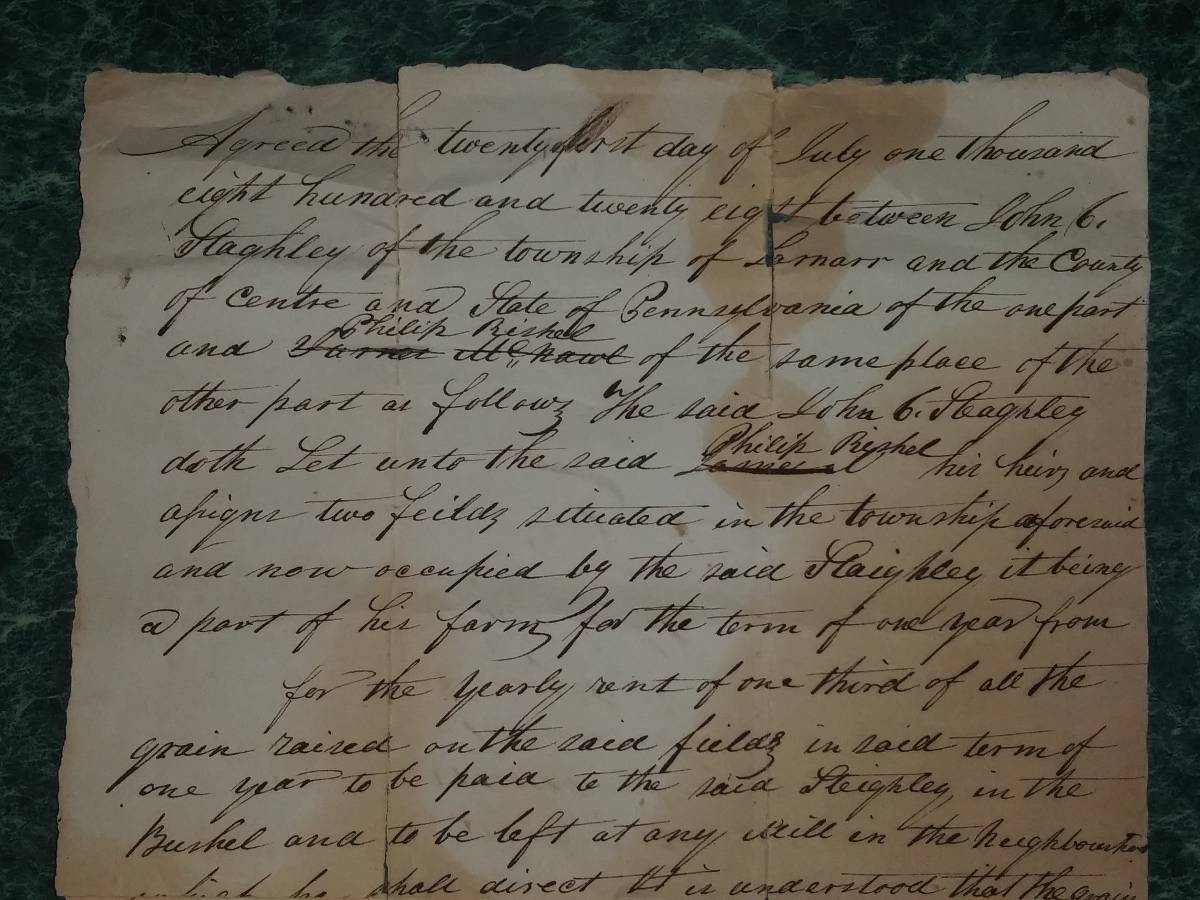 Agreed the twenty first day of July one thousand
eight hundred and twenty eight between John C.
Staghley of the township of Lamarr and the County
of Centre and State of Pennsylvania of the one part
Philip Rishel
and of the same place of the
other part as follows The said John C. Steaghley
Philip Rishel
doth Let unto the said his heirs and
assigns two feilds situated in the township aforesaid
and now occupied by the said Staighley it being
a part of his farm for the term of one year from
for the yearly rent of one third of all the
grain raised on the said fields in said term of
one year to be paid to the said Steighley, in the
Bushel and to be left at any Mill in the neighbourhood
which he shall direct It is understood that the grain